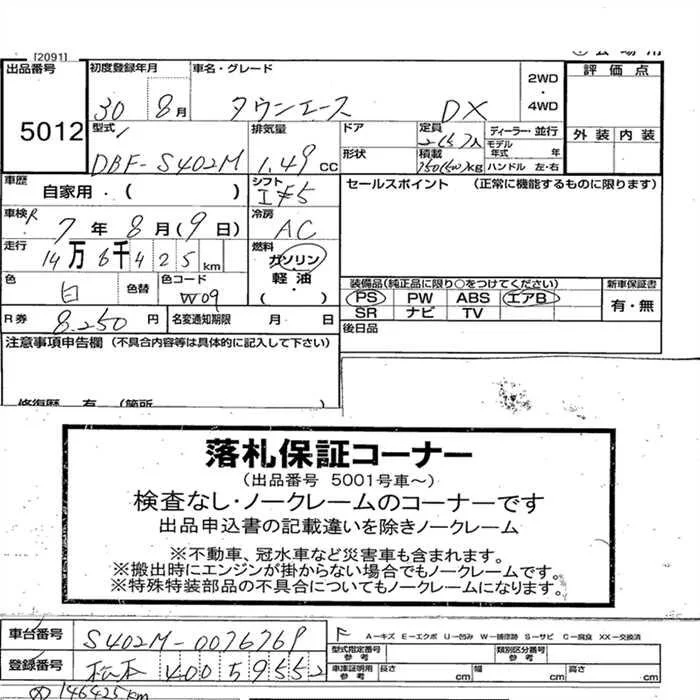 [2091]
出品番号 初度登録年月 車名・グレード 2WD・4WD 評価点
5012 30 8月 タウンエース DX
外装 内装
型式 排気量 ドア 定員 ディーラー・並行
DBF-S402M 1.49cc 形状 積載 kg モデル年式 年 ハンドル 左・右
車歴 自家用・( ) シフト セールスポイント (正常に機能するものに限ります)
車検 R7年8月(9日) 冷房 AC
走行 14万6千425km 燃料 ガソリン・軽油・( )
色 白 色替 色コード W09
装備品(純正品に限り○をつけてください) 新車保証書
PS PW ABS エアB 有・無
SR ナビ TV
R券 8.250円 名変通知期限 月 日 後日品
注意事項申告欄 (不具合内容等は具体的に記入して下さい)
修復歴 有 (箇所
落札保証コーナー
(出品番号 5001号車~)
検査なし・ノークレームのコーナーです
出品申込書の記載違いを除きノークレーム
※不動車、冠水車など災害車も含まれます。
※搬出時にエンジンが掛からない場合でもノークレームです。
※特殊特装部品の不具合についてもノークレームになります。
車台番号 S402M-0076769 F A-キズ E-エクボ U-凹み W-補修跡 S-サビ C-腐食 XX-交換済
型式指定番号 参考 類別区分番号 参考
登録番号 松本 400 5 9552 車庫証明用 参考 長さ cm 幅 cm 高さ cm
146425km